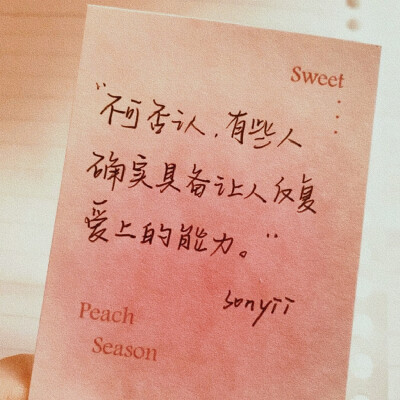 Sweet
“不可否认，有些人
确实具备让人反复
爱上的能力。”
sonyii
Peach
Season